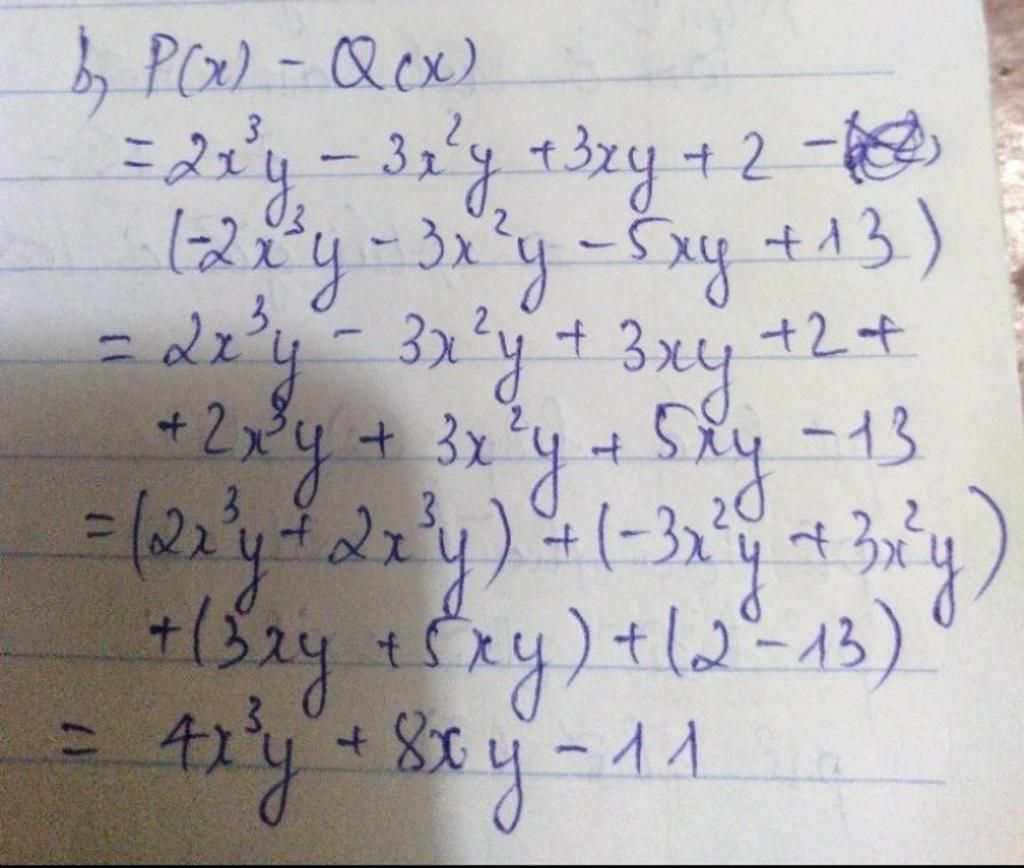 b, P(x) - Q(x)
= 2x³y - 3x²y + 3xy + 2 -
(-2x³y - 3x²y - 5xy + 13)
= 2x³y - 3x²y + 3xy + 2 +
+ 2x³y + 3x²y + 5xy - 13
= (2x³y + 2x³y) + (-3x²y + 3x²y)
+ (3xy + 5xy) + (2 - 13)
= 4x³y + 8xy - 11